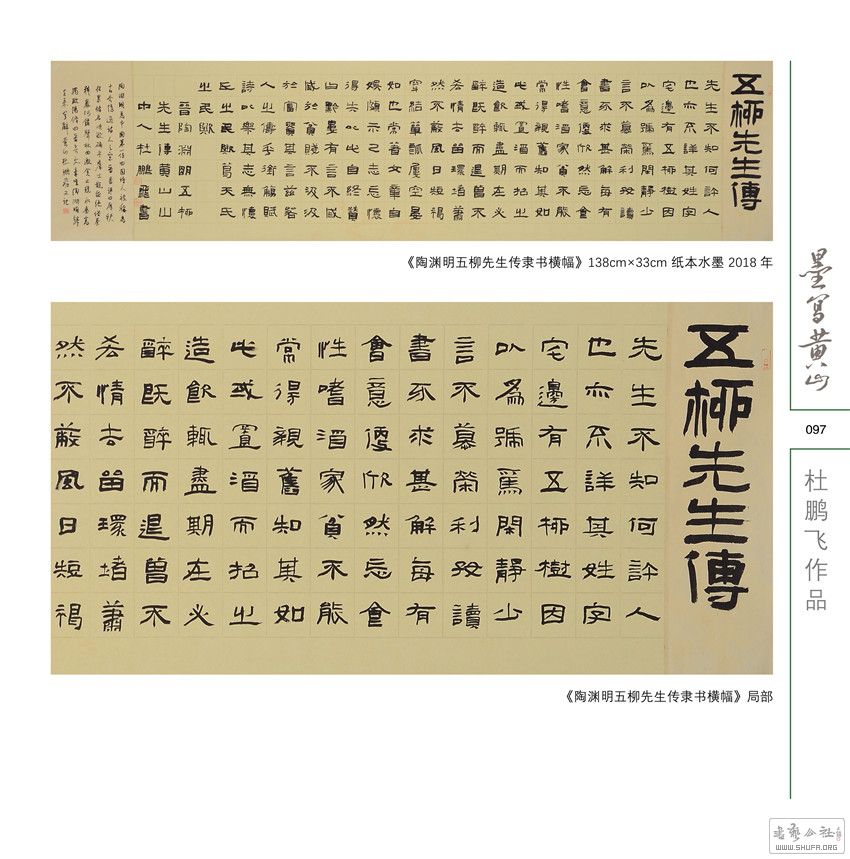 五柳先生傳
先生不知何許人
也亦不詳其姓字
宅邊有五柳樹因
以為號焉閑靜少
言不慕榮利好讀
書不求甚解每有
會意便欣然忘食
性嗜酒家貧不能
常得親舊知其如
此或置酒而招之
造飲輒盡期在必
醉既醉而退曾不
吝情去留環堵蕭
然不蔽風日短褐
穿結簞瓢屢空晏
如也常著文章自
娛頗示己志忘懷
得失以此自終贊
曰黔婁有言不戚
戚於貧賤不汲汲
於富貴其言
人之儔乎銜觴賦
詩以樂其志無懷
氏之民歟葛天氏
之民歟
晉陶淵明五柳
先生傳黃山山
中人杜鵬飛書
《陶渊明五柳先生传隶书横幅》138cm×33cm 纸本水墨 2018 年
五柳先生傳
先生不知何許人
也亦不詳其姓字
宅邊有五柳樹因
以為號焉閑靜少
言不慕榮利好讀
書不求甚解每有
會意便欣然忘食
性嗜酒家貧不能
常得親舊知其如
此或置酒而招之
造飲輒盡期在必
醉既醉而退曾不
吝情去留環堵蕭
然不蔽風日短褐
《陶渊明五柳先生传隶书横幅》局部
墨写黄山
097
杜鹏飞作品
WWW.SHUFA.ORG